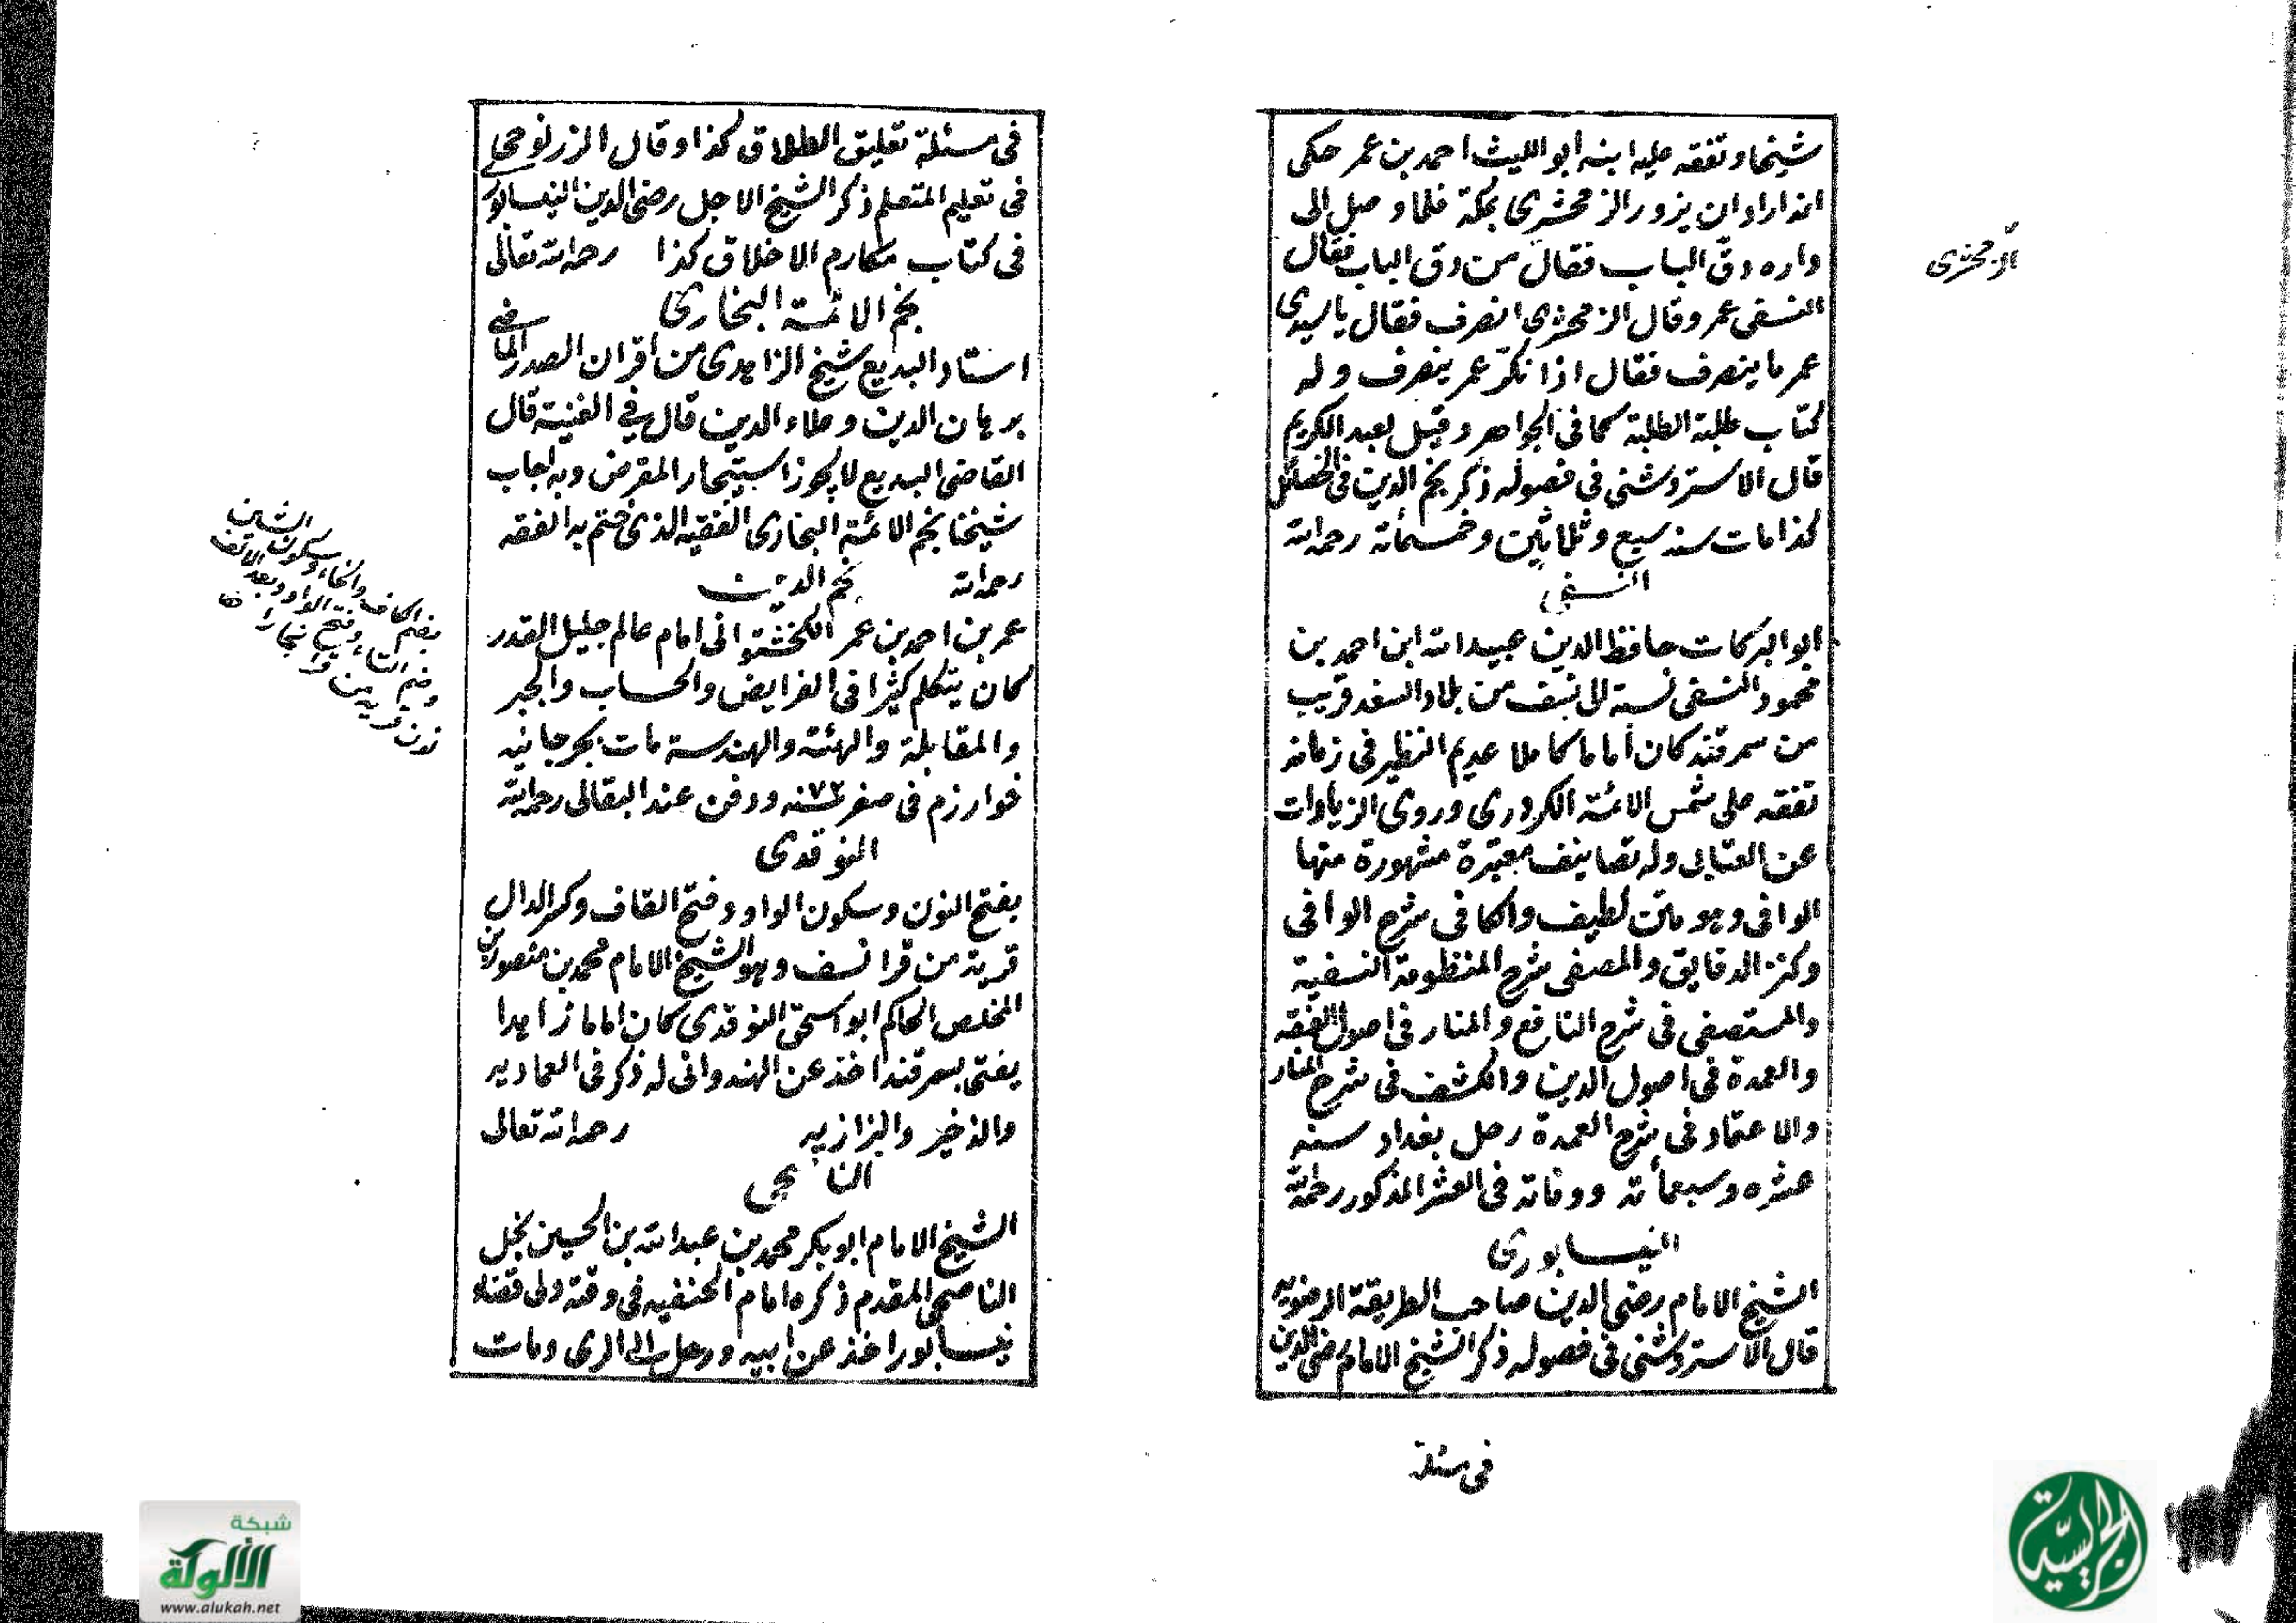 شيخا وتفقه عليه ابنه ابو الليث احمد بن عمر حكى
انه اراد ان يزور الزمخشرى بمكة فلما وصل الى
داره دق الباب فقال من دق الباب فقال
النسفى عمر وقال الزمخشرى انصرف فقال يا سيدى
عمر ما ينصرف فقال اذا نكر عمر ينصرف وله
كتاب طلبة الطلبة كما فى الجواهر وقيل لعبد الكريم
قال الاستروشنى فى فصوله ذكر نجم الدين فى الخصائل
كذا مات سنه سبع وثلاثين وخمسمائة رحمه الله
النسفى
ابو البركات حافظ الدين عبيد الله ابن احمد بن
محمود النسفى نسبة الى نسف من بلاد السغد قريب
من سمرقند كان أماما كاملا عديم النظير فى زمانه
تفقه على شمس الائمة الكردرى وروى الزيادات
عن العتابى وله تصانيف معتبرة مشهورة منها
الوافى وهو متن لطيف والكافى شرح الوافى
وكنز الدقايق والمصفى شرح المنظومة النسفية
والمستصفى فى شرح النافع والمنار فى اصول الفقه
والعمدة فى اصول الدين والكشف فى شرح المنار
والاعتماد فى شرح العمدة رحل بغداد سنه
عشره وسبعمأئة ووفاته فى العشر المذكور رحمه الله
النيسابورى
الشيخ الامام رضى الدين صاحب الطريقة الرضويه
قال الاستروشنى فى فصوله ذكر الشيخ الامام رضى الدين
فى مسئلة
الزمخشرى
فى مسئلة تعليق الطلاق كذا وقال الزرنوجى
فى تعليم المتعلم ذكر الشيخ الاجل رضى الدين النيسابورى
فى كتاب مكارم الاخلاق كذا رحمه الله تعالى
نجم الائمة البخارى
استاد البديع شيخ الزاهدى من اقران الصدر الماضى
برهان الدين وعلاء الدين قال في القنية قال
القاضى البديع لا يجوز استيجار المقرض وبه اجاب
شيخنا نجم الائمة البخارى الفقيه الذى ختم به الفقه
رحمه الله نجم الدين
عمر بن احمد بن عمر الكخشتوانى امام عالم جليل القدر
كان يتكلم كثيرا فى الفرايض والحساب والجبر
والمقابلة والهئة والهندسة مات بجرجانيه
خوارزم فى صفر سنه ودفن عند البقالى رحمه الله
النوقدى
بفتح النون وسكون الواو وفتح القاف وكسر الدال
قرية من قرا نسف وهو الشيخ الامام محمد بن منصور بن
المخلص الحاكم ابو اسحق النوقدى كان اماما زاهدا
يفتى بسمرقند اخذ عن الهندوانى له ذكر فى العماديه
والذخير والبزازيه رحمه الله تعالى
الناصحى
الشيخ الامام ابو بكر محمد بن عبد الله بن الحسين نجل
الناصحى المقدم ذكره امام الحنفيه فى وقته ولى قضاء
نيسابور اخذ عن ابيه ورحل الى الرى ومات
بضم الكاف والخاء وسكون الشين
وضم التاء وفتح الواو وبعد الالف
نون قرية من بخارا
شبكة
الألوكة
www.alukah.net